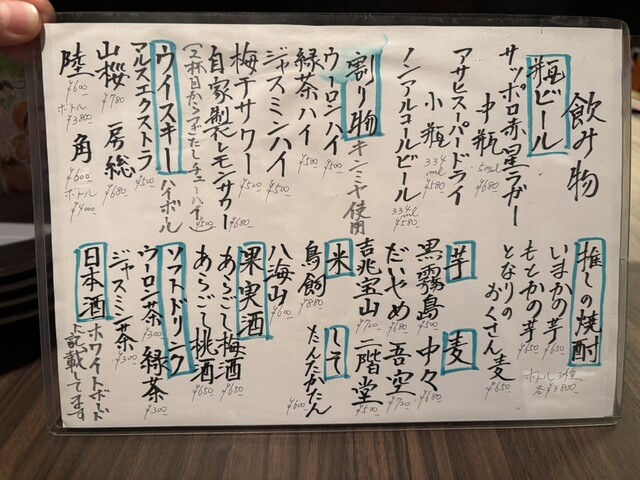 飲み物
瓶ビール
サッポロ赤星ラガー
中瓶 500ml ¥680
アサヒスーパードライ
小瓶 334ml ¥580
ノンアルコールビール 334ml ¥580
割り物 キンミヤ使用
ウーロンハイ ¥500
緑茶ハイ ¥500
ジャスミンハイ ¥500
梅干サワー ¥520
自家製レモンサワー ¥680
(2杯目からつぎたしチューハイ ¥500)
ウイスキー ハイボール
マルスエクストラ ¥500
山桜 ¥780 房総 ¥680
陸 ¥600 ボトル ¥3800 角 ¥600 ボトル ¥4000
推しの焼酎
いまかの芋 ¥650
もとかの芋 ¥650
となりのおくさん麦 ¥650
ボトル3種 各¥3800
芋 麦
黒霧島 ¥500 中々 ¥680
だいやめ ¥680 吾空 ¥720
吉兆宝山 ¥720 二階堂 ¥500
米 しそ
鳥飼 ¥880 たんたかたん ¥600
八海山 ¥600
果実酒
あらごし梅酒 ¥650
あらごし桃酒 ¥650
ソフトドリンク
ウーロン茶 ¥300 緑茶 ¥300
ジャスミン茶 ¥300
日本酒 ホワイトボードに記載してます